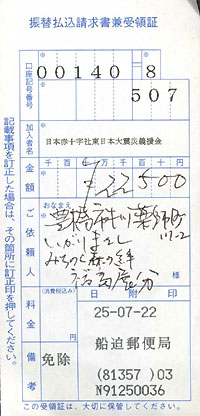 振替払込請求書兼受領証
口座記号番号
00140 8
507
加入者名
日本赤十字社東日本大震災義援金
金額
千百十万千百十円
¥22500
ご依頼人
おなまえ
豊橋市
みちのく森の絆
様
料金
(消費税込み)
免除
備考
日附印
25-07-22
船迫郵便局
(81357) 03
N91250036
記載事項を訂正した場合は、その箇所に訂正印を押してください。
この受領証は、大切に保管してください。